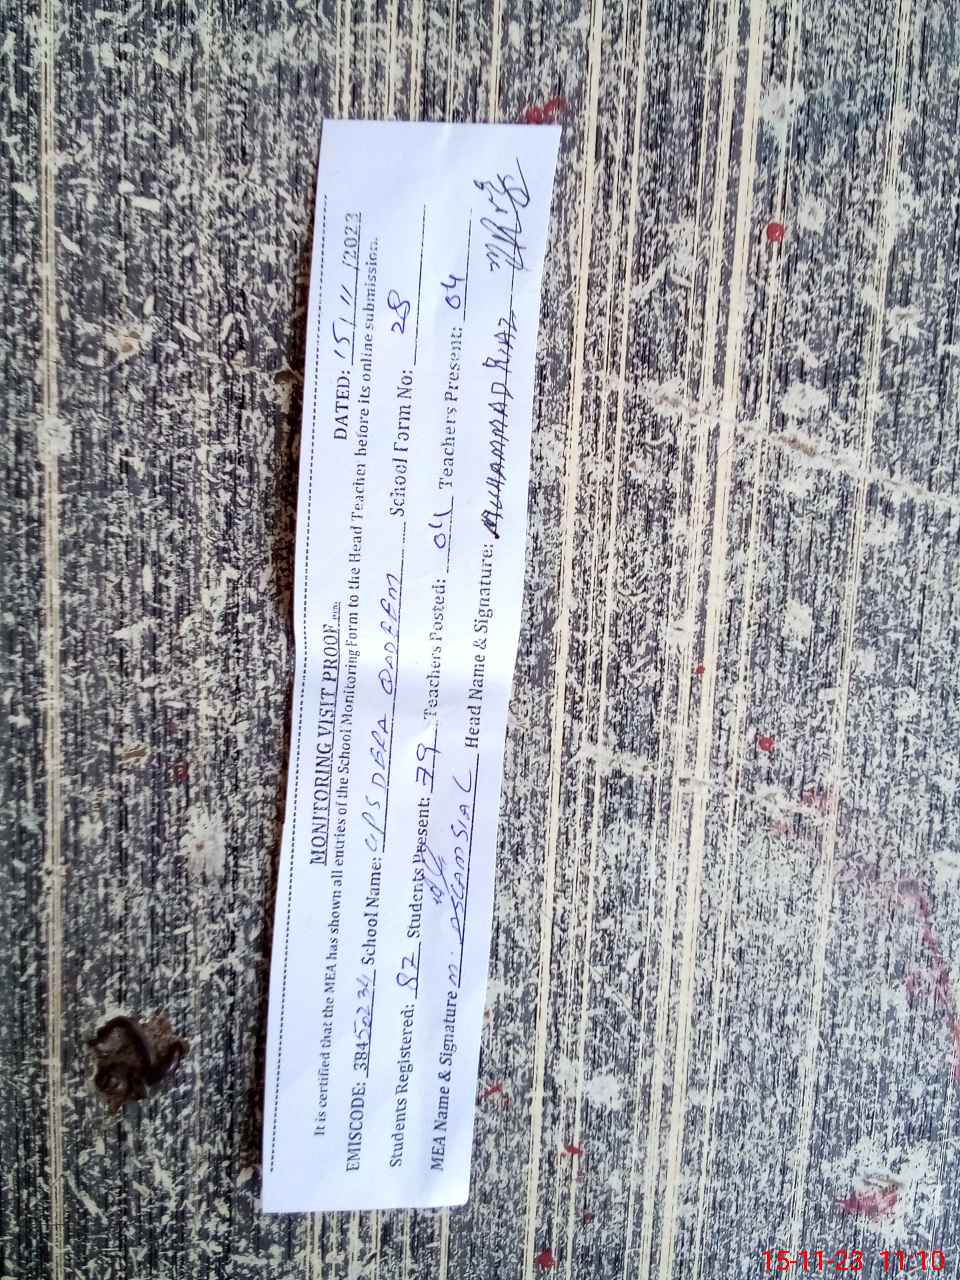 MONITORING VISIT PROOF
DATED: 15/11/2023
It is certified that the MEA has shown all entries of the School Monitoring Form to the Head Teacher before its online submission.
EMISCODE: 38450234 School Name: GPS DERA QADEEM School Form No: 28
Students Registered: 82 Students Present: 79 Teachers Posted: 04 Teachers Present: 04
MEA Name & Signature M. ASLAM SIAL Head Name & Signature: MUHAMMAD RIAZ
15-11-23 11:10